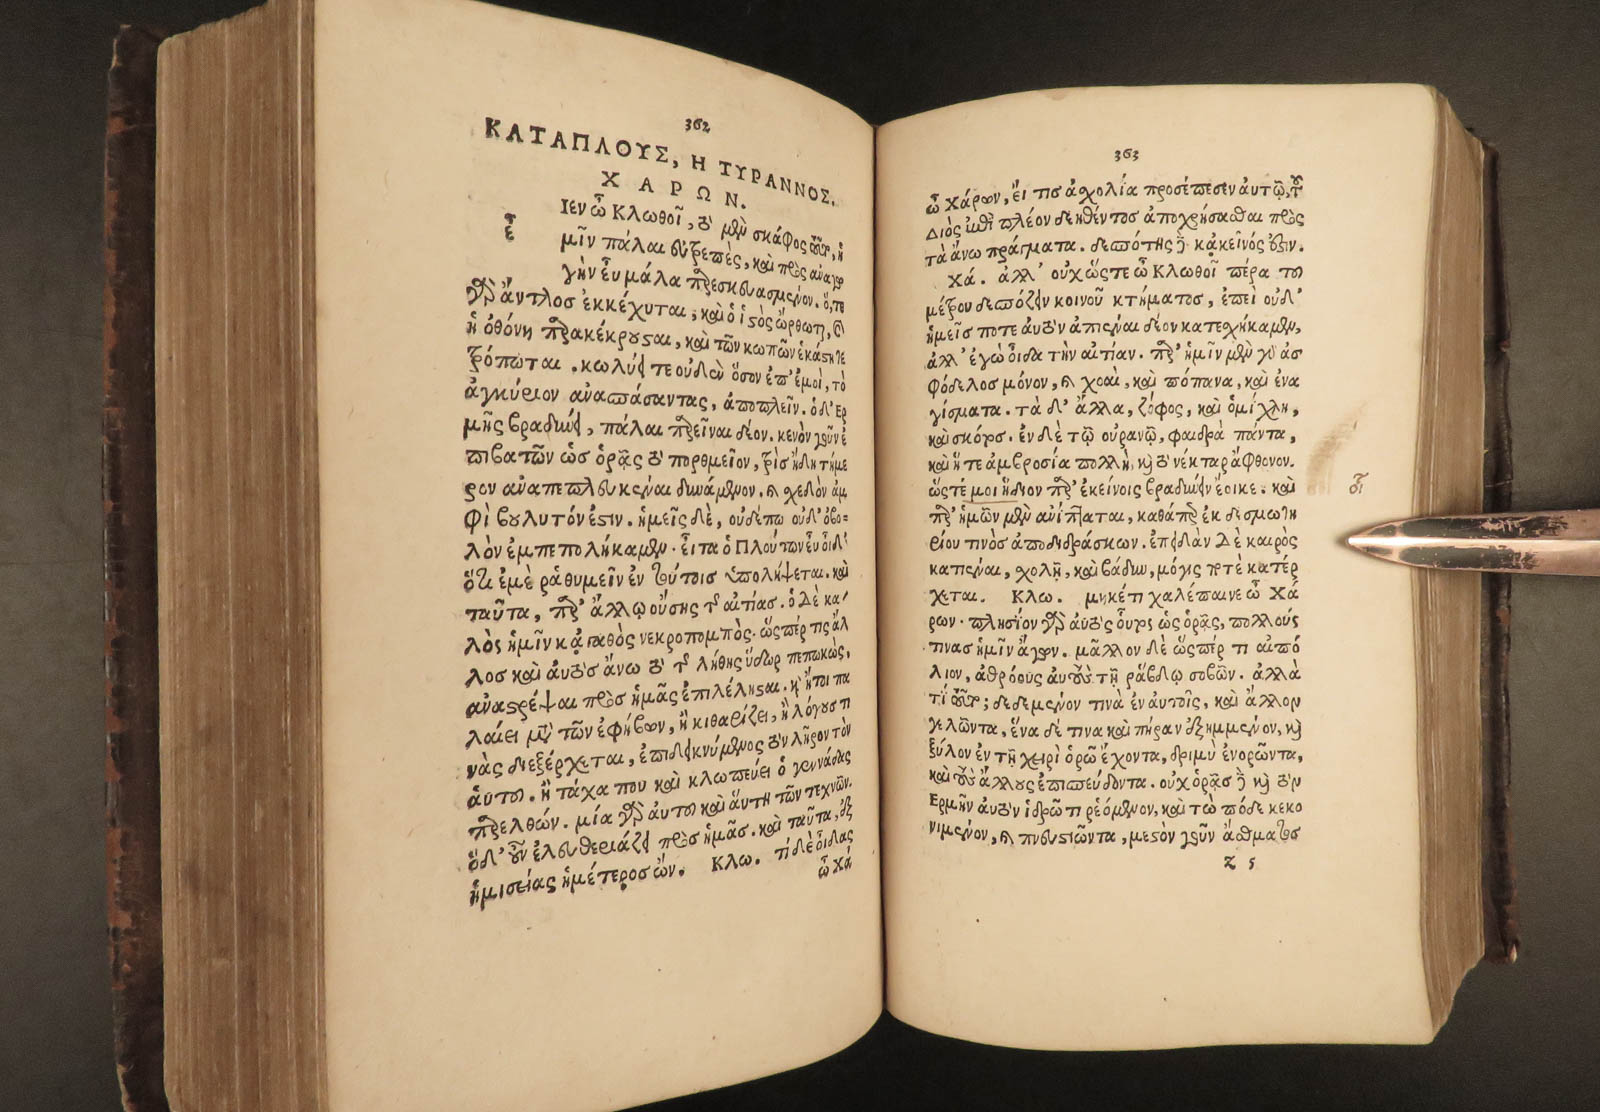 362
ΚΑΤΑΠΛΟΥΣ, Η ΤΥΡΑΝΝΟΣ.
ΧΑΡΩΝ.
ἶεν ὦ Κλωθοῖ, τὸ μὲν σκάφος τοῦτο, ἡ
μῖν πάλαι εὐτρεπὲς, καὶ πρὸς ἀναγω
γὴν εὖ μάλα παρεσκευασμένον. ὅ, τε
γὰρ ἄντλος ἐκκέχυται, καὶ ὁ ἱστὸς ὤρθωται, καὶ
ἡ ὀθόνη παρακέκρουσται, καὶ τῶν κωπῶν ἑκάστη τε
τρόπωται. κωλύει τε οὐδὲν ὅσον ἐπ' ἐμοὶ, τὸ
ἀγκύριον ἀνασπάσαντας, ἀποπλεῖν. ὁ δ' Ἑρ
μῆς βραδύνει, πάλαι παρεῖναι δέον. κενὸν γοῦν ἐ
πιβατῶν ὡς ὁρᾷς τὸ πορθμεῖον, τρὶς ἤδη τήμε
ρον ἀναπεπλευκέναι δυνάμενον. καὶ σχεδὸν ἀμ
φὶ βουλυτόν ἐστιν. ἡμεῖς δὲ, οὐδέπω οὐδ' ὀβο-
λὸν ἐμπεπολήκαμεν. εἶτα ὁ Πλούτων εὖ οἶδ'
ὅτι ἐμὲ ῥᾳθυμεῖν ἐν τούτοις ὑπολήψεται. καὶ
ταῦτα, παρ' ἄλλῳ οὔσης τῆς αἰτίας. ὁ δὲ κα
λὸς ἡμῖν κἀγαθὸς νεκροπομπὸς. ὥσπέρ τις ἄλ
λος καὶ αὐτὸς ἄνω τὸ τῆς λήθης ὕδωρ πεπωκὼς,
ἀναστρέψαι πρὸς ἡμᾶς ἐπιλέλησται. καὶ ἤτοι πα
λαίει μετὰ τῶν ἐφήβων, ἢ κιθαρίζει, ἢ λόγους τι
νὰς διεξέρχεται, ἐπιδεικνύμενος τὸν λῆρον τὸν
αὑτοῦ. ἢ τάχα που καὶ κλωπεύει ὁ γεννάδας
παρελθών. μία γὰρ αὐτοῦ καὶ αὕτη τῶν τεχνῶν.
ὁ δ' οὖν ἐλευθεριάζει πρὸς ἡμᾶς. καὶ ταῦτα, ἐξ
ἡμισείας ἡμέτερος ὤν. Κλω. τί δὲ οἶδας
ὦ Χά
363
ὦ Χάρων, εἴ τις ἀσχολία προσέπεσεν αὐτῷ, τοῦ
Διὸς ἐπὶ πλέον δεηθέντος ἀποχρήσασθαι πρὸς
τὰ ἄνω πράγματα. δεσπότης δὲ κἀκεῖνός ἐστιν.
Χά. ἀλλ' οὐχ ὥστε ὦ Κλωθοῖ πέρα τοῦ
μέτρου δεσπόζειν κοινοῦ κτήματος, ἐπεὶ οὐδ'
ἡμεῖς ποτε αὐτὸν ἀπιέναι δέον κατεσχήκαμεν,
ἀλλ' ἐγὼ οἶδα τὴν αἰτίαν. παρ' ἡμῖν μὲν γὰρ ἀσ
φόδελος μόνον, καὶ χοαὶ, καὶ πόπανα, καὶ ἐνα
γίσματα. τὰ δ' ἄλλα, ζόφος, καὶ ὁμίχλη,
καὶ σκότος. ἐν δὲ τῷ οὐρανῷ, φαιδρὰ πάντα,
καὶ ἥ τε ἀμβροσία πολλὴ, καὶ τὸ νέκταρ ἄφθονον.
ὥστέ μοι ἥδιον παρ' ἐκείνοις βραδύνειν ἔοικε. καὶ
οἱ
παρ' ἡμῶν μὲν ἀνίπταται, καθάπερ ἐκ δεσμωτη
ρίου τινὸς ἀποδιδράσκων. ἐπειδὰν δὲ καιρὸς
κατιέναι, σχολῇ, καὶ βάδην, μόγις ποτὲ κατέρ
χεται. Κλω. μηκέτι χαλέπαινε ὦ Χά
ρων. πλησίον γὰρ αὐτὸς οὗτος ὡς ὁρᾷς, πολλούς
τινας ἡμῖν ἄγων. μᾶλλον δὲ ὥσπέρ τι αἰπό
λιον, ἀθρόους αὐτοὺς τῇ ῥάβδῳ σοβῶν. ἀλλὰ
τί τοῦτο; δεδεμένον τινὰ ἐν αὐτοῖς, καὶ ἄλλον
γελῶντα, ἕνα δέ τινα καὶ πήραν ἐξημμένον, καὶ
ξύλον ἐν τῇ χειρὶ ὁρῶ ἔχοντα, δριμὺ ἐνορῶντα,
καὶ τοὺς ἄλλους ἐπισπεύδοντα. οὐχ ὁρᾷς δὲ καὶ τὸν
Ἑρμῆν αὐτὸν ἱδρῶτι ῥεόμενον, καὶ τὼ πόδε κεκο
νιμένον, καὶ πνευστιῶντα, μεστὸν γοῦν ἄσθματος
Z 5